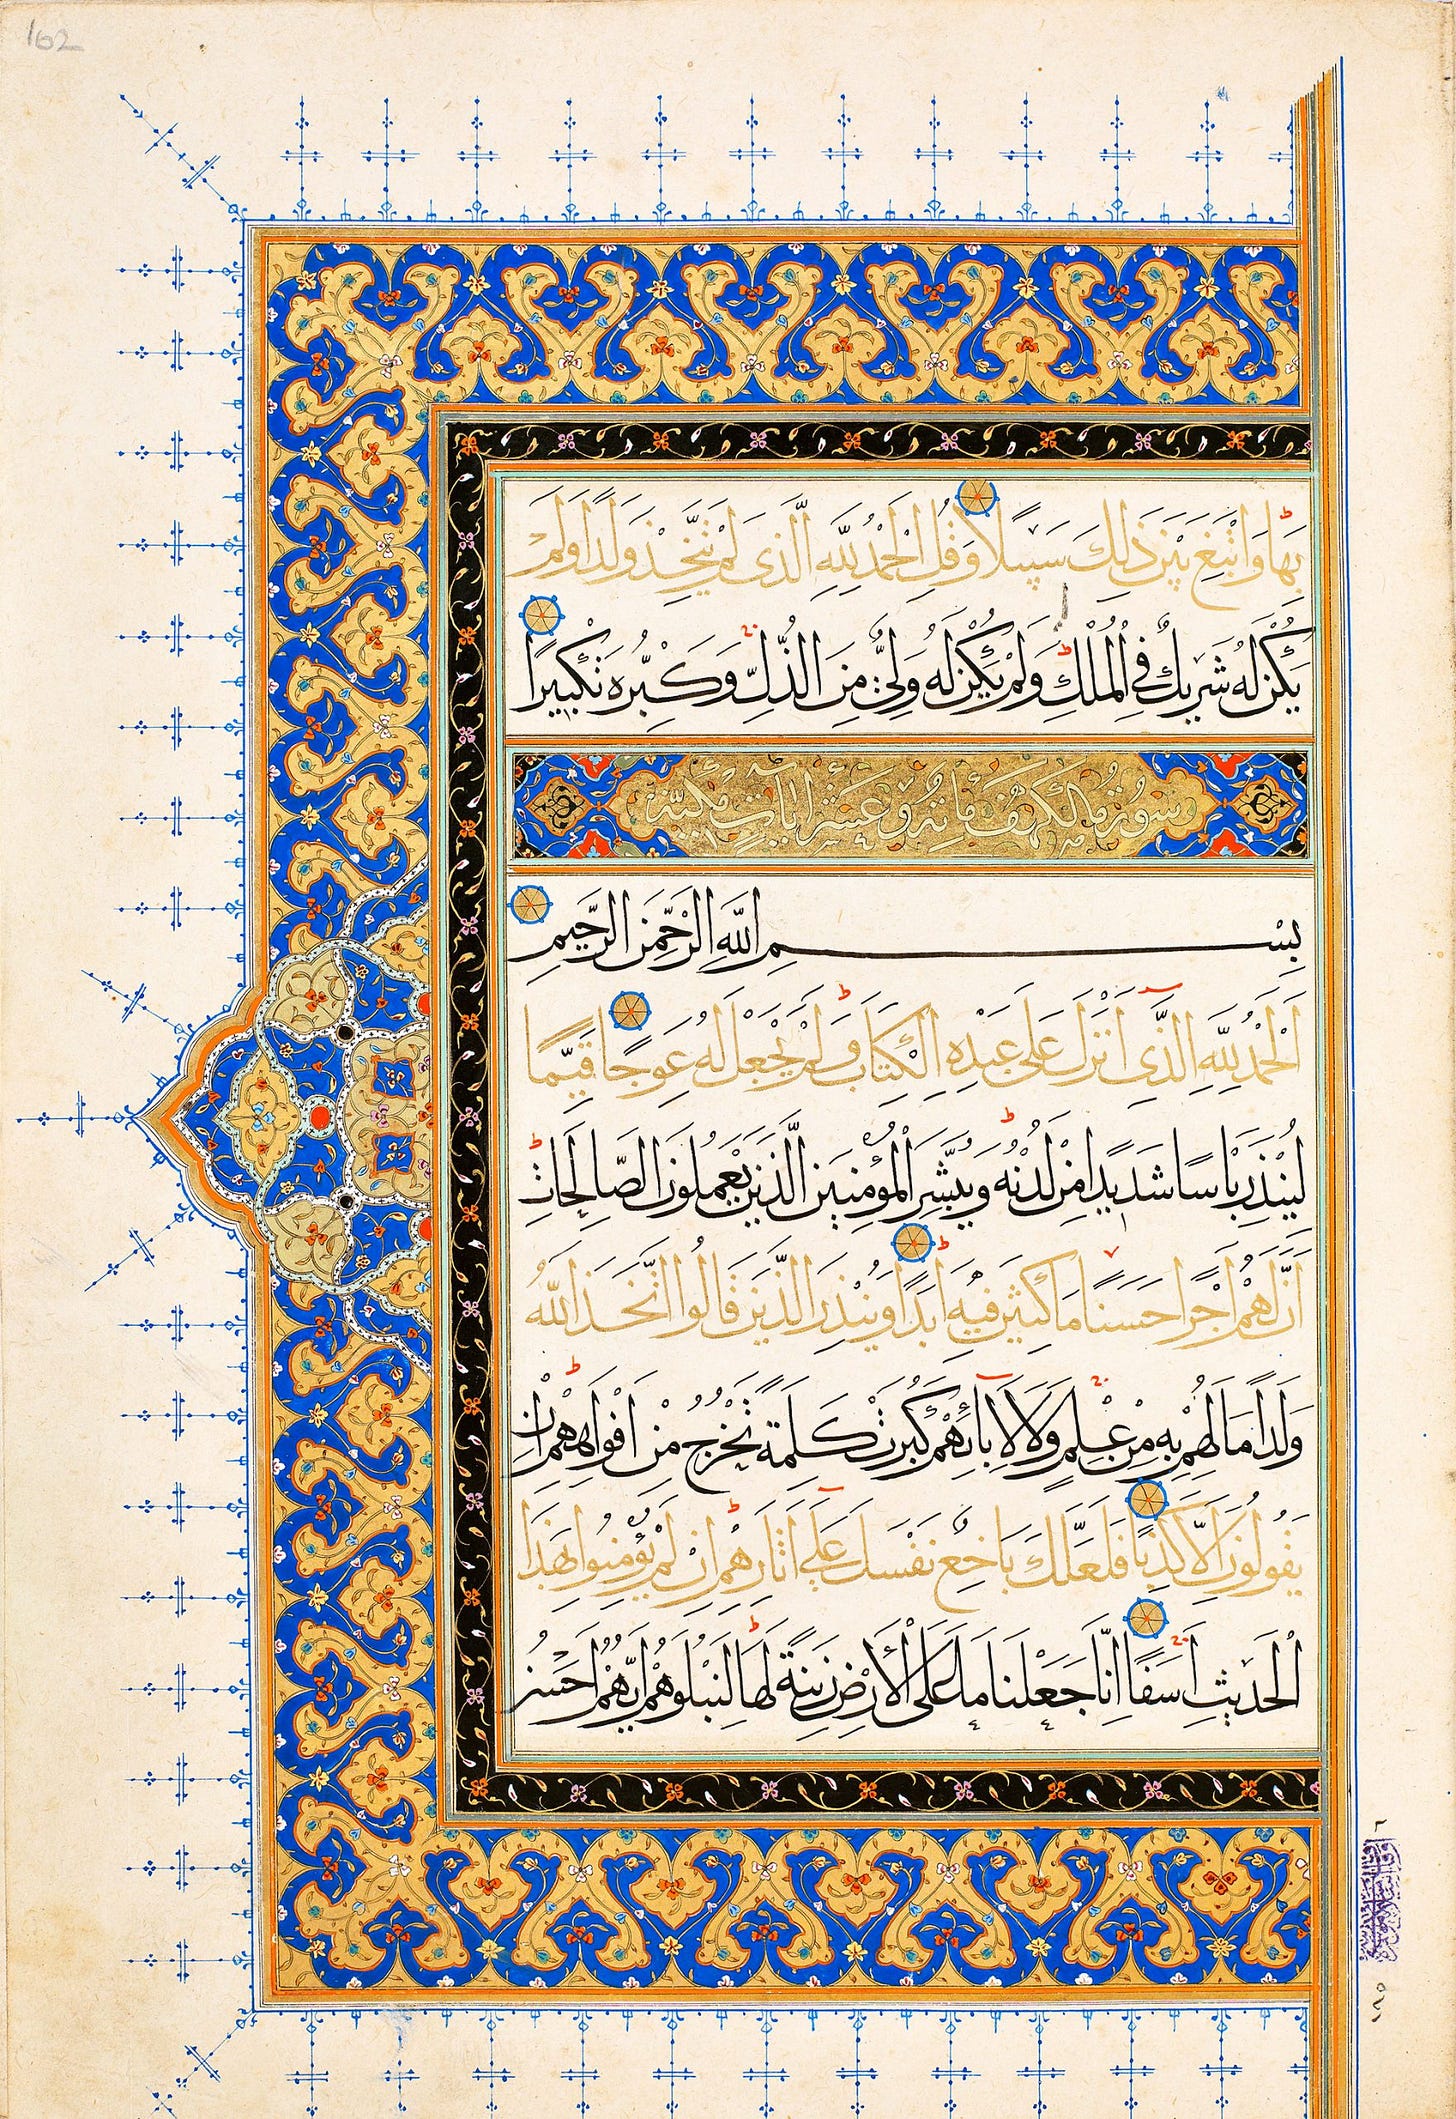 162
بِهَا وَابْتَغِ بَيْنَ ذٰلِكَ سَبِيلًا وَقُلِ الْحَمْدُ لِلّٰهِ الَّذِى لَمْ يَتَّخِذْ وَلَدًا وَلَمْ
يَكُنْ لَهُ شَرِيكٌ فِى الْمُلْكِ وَلَمْ يَكُنْ لَهُ وَلِىٌّ مِنَ الذُّلِّ وَكَبِّرْهُ تَكْبِيرًا
سورة الكهف مائة وعشر ايات مكية
بِسْمِ اللّٰهِ الرَّحْمٰنِ الرَّحِيمِ
اَلْحَمْدُ لِلّٰهِ الَّذِى اَنْزَلَ عَلٰى عَبْدِهِ الْكِتَابَ وَلَمْ يَجْعَلْ لَهُ عِوَجًا قَيِّمًا
لِيُنْذِرَ بَاْسًا شَدِيدًا مِنْ لَدُنْهُ وَيُبَشِّرَ الْمُؤْمِنِينَ الَّذِينَ يَعْمَلُونَ الصَّالِحَاتِ
اَنَّ لَهُمْ اَجْرًا حَسَنًا مَاكِثِينَ فِيهِ اَبَدًا وَيُنْذِرَ الَّذِينَ قَالُوا اتَّخَذَ اللّٰهُ
وَلَدًا مَا لَهُمْ بِهِ مِنْ عِلْمٍ وَلَا لِاٰبَائِهِمْ كَبُرَتْ كَلِمَةً تَخْرُجُ مِنْ اَفْوَاهِهِمْ اِنْ
يَقُولُونَ اِلَّا كَذِبًا فَلَعَلَّكَ بَاخِعٌ نَفْسَكَ عَلٰى اٰثَارِهِمْ اِنْ لَمْ يُؤْمِنُوا بِهٰذَا
الْحَدِيثِ اَسَفًا اِنَّا جَعَلْنَا مَا عَلَى الْاَرْضِ زِينَةً لَهَا لِنَبْلُوَهُمْ اَيُّهُمْ اَحْسَنُ